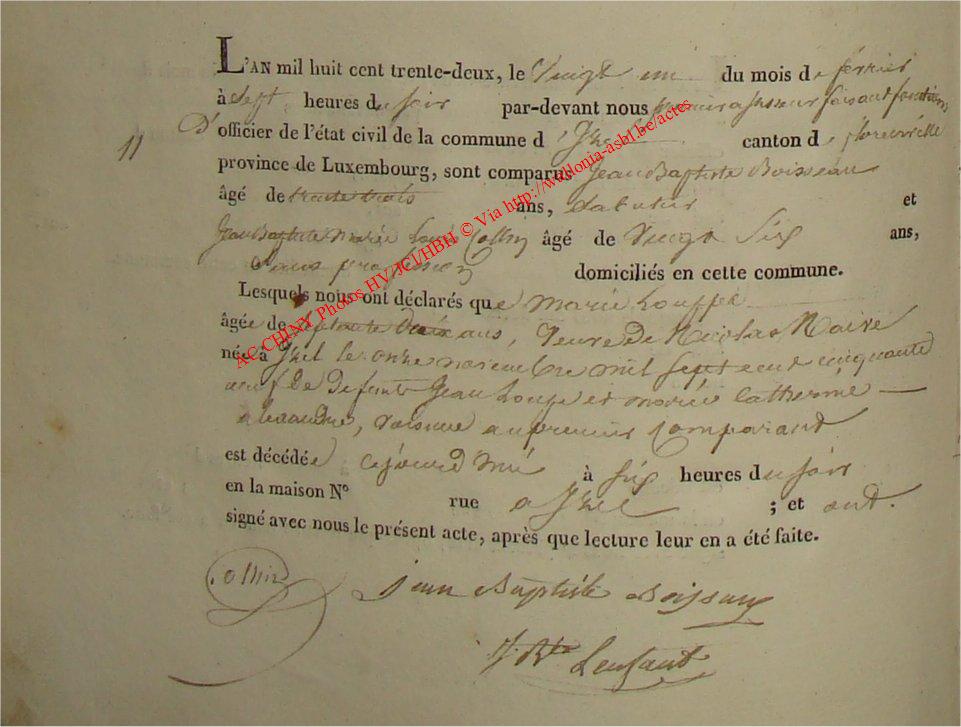 L'AN mil huit cent trente-deux, le Vingt un du mois de février
à Sept heures du soir par-devant nous premier assesseur faisant fonctions
11
D'officier de l'état civil de la commune d'Izel canton de florenville
province de Luxembourg, sont comparus Jean Baptiste Boisseau
âgé de trente trois ans, et
Jean Baptiste Marie Louis Collin âgé de Vingt Six ans,
Sans profession domiciliés en cette commune.
Lesquels nous ont déclarés que Marie Louppe
âgée de Septante Deux ans, Veuve De Nicolas
née à Izel le onze novembre mil Sept cent cinquante
neuf De Defunts Jean Loupe et Marie Catherine
alexandre, voisine au premier Comparant
est décédée cejourd'hui à Six heures du soir
en la maison Nº rue a Izel ; et ont
signé avec nous le présent acte, après que lecture leur en a été faite.
Collin Jean Baptiste Boisseau
J Bte Lenfant
AC CHINY Photos HV/JCI/HBH © Via http://wallonia-asbl.be/actes